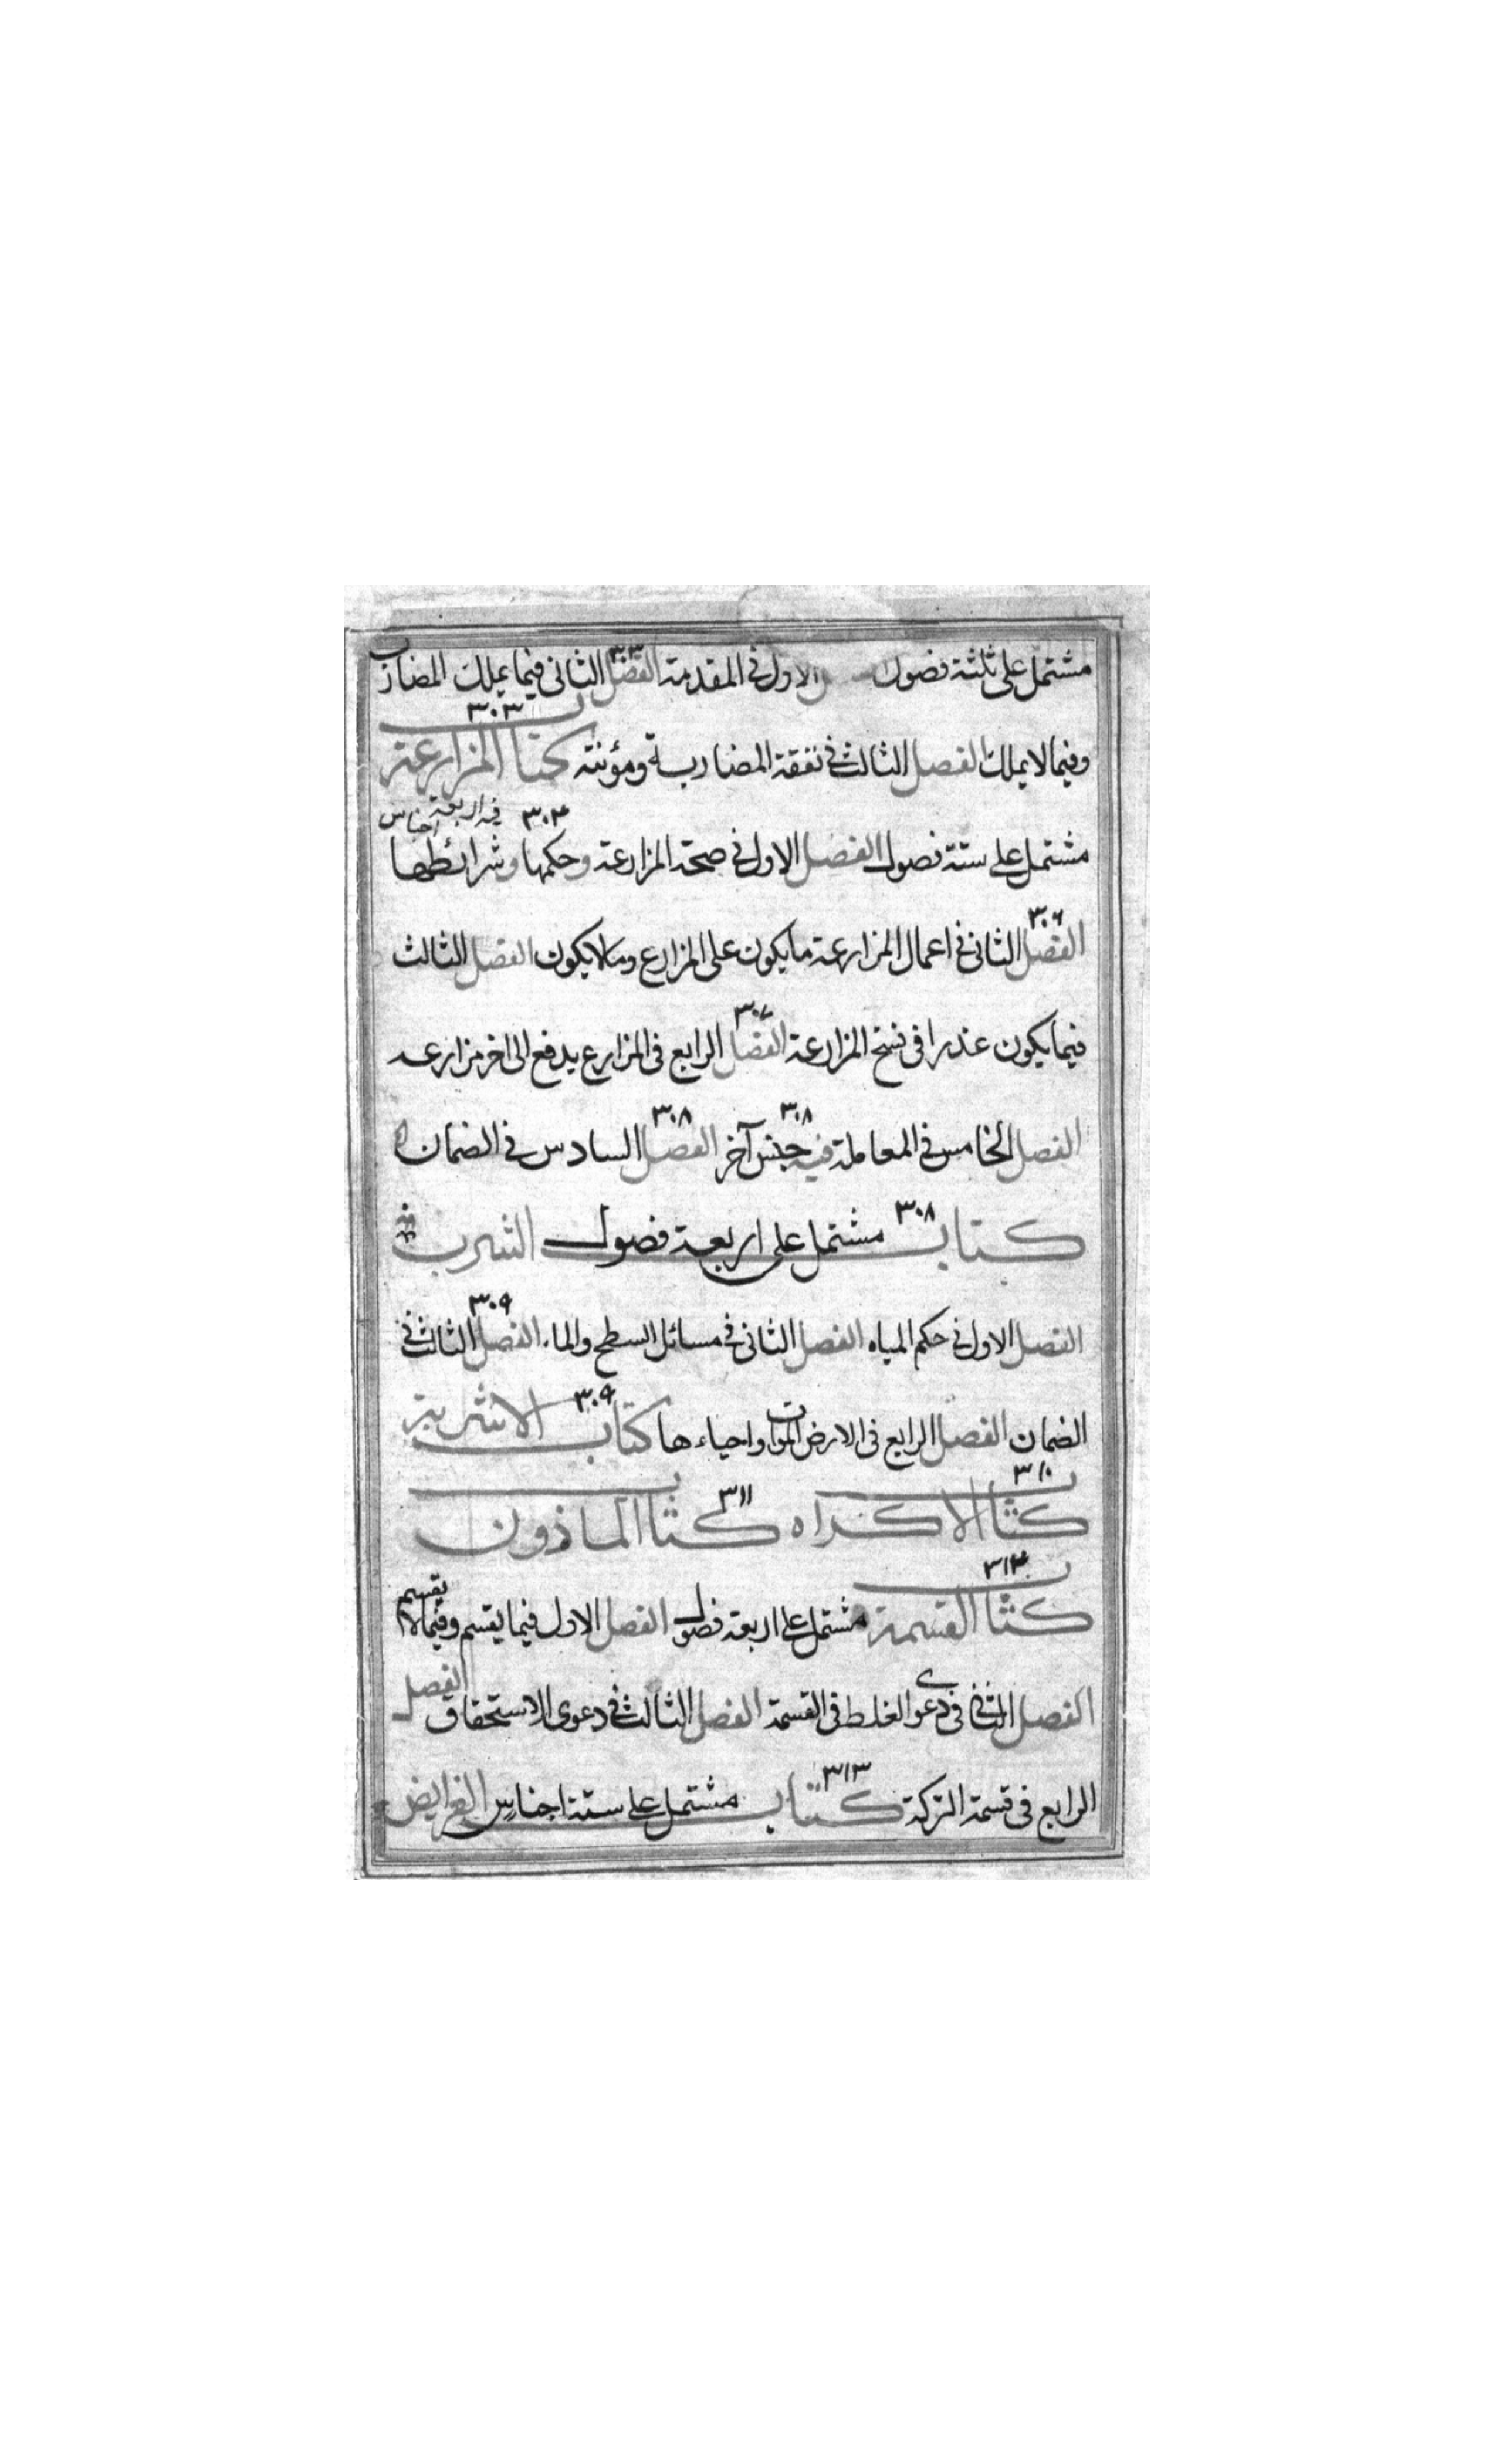 مشتمل على ثلثة فصول الاول فى المقدمة الفصل الثانى فيما يملك المضارب
٣٠٣
وفيما لا يملك الفصل الثالث فى نفقة المضاربة ومؤنته كتاب المزارعة
٣٠٤ فيه اربعة اجناس
مشتمل على ستة فصول الفصل الاول فى صحة المزارعة وحكمها وشرائطها
٣٠٦
الفصل الثانى فى اعمال المزارعة ما يكون على المزارع وما لا يكون الفصل الثالث
٣٠٧
فيما يكون عذرا فى فسخ المزارعة الفصل الرابع فى المزارع يدفع الى اخر مزارعة
٣٠٨ ٣٠٨
الفصل الخامس فى المعاملة فيه جنس آخر الفصل السادس فى الضمان
كتاب ٣٠٨ مشتمل على اربعة فصول الشرب
٣٠٩
الفصل الاول فى حكم المياه الفصل الثانى فى مسائل السطح والماء الفصل الثالث فى
الضمان الفصل الرابع فى الارض الموات واحياءها كتاب ٣٠٩ الاشربة
٣١٠ ٣١١
كتاب الاكراه كتاب الماذون
٣١٢
كتاب القسمة مشتمل على اربعة فصول الفصل الاول فيما يقسم وفيما لا يقسم
الفصل الثانى فى دعوى الغلط فى القسمة الفصل الثالث فى دعوى الاستحقاق الفصل
الرابع فى قسمة التركة كتاب ٣١٣ مشتمل على ستة اجناس الفرايض